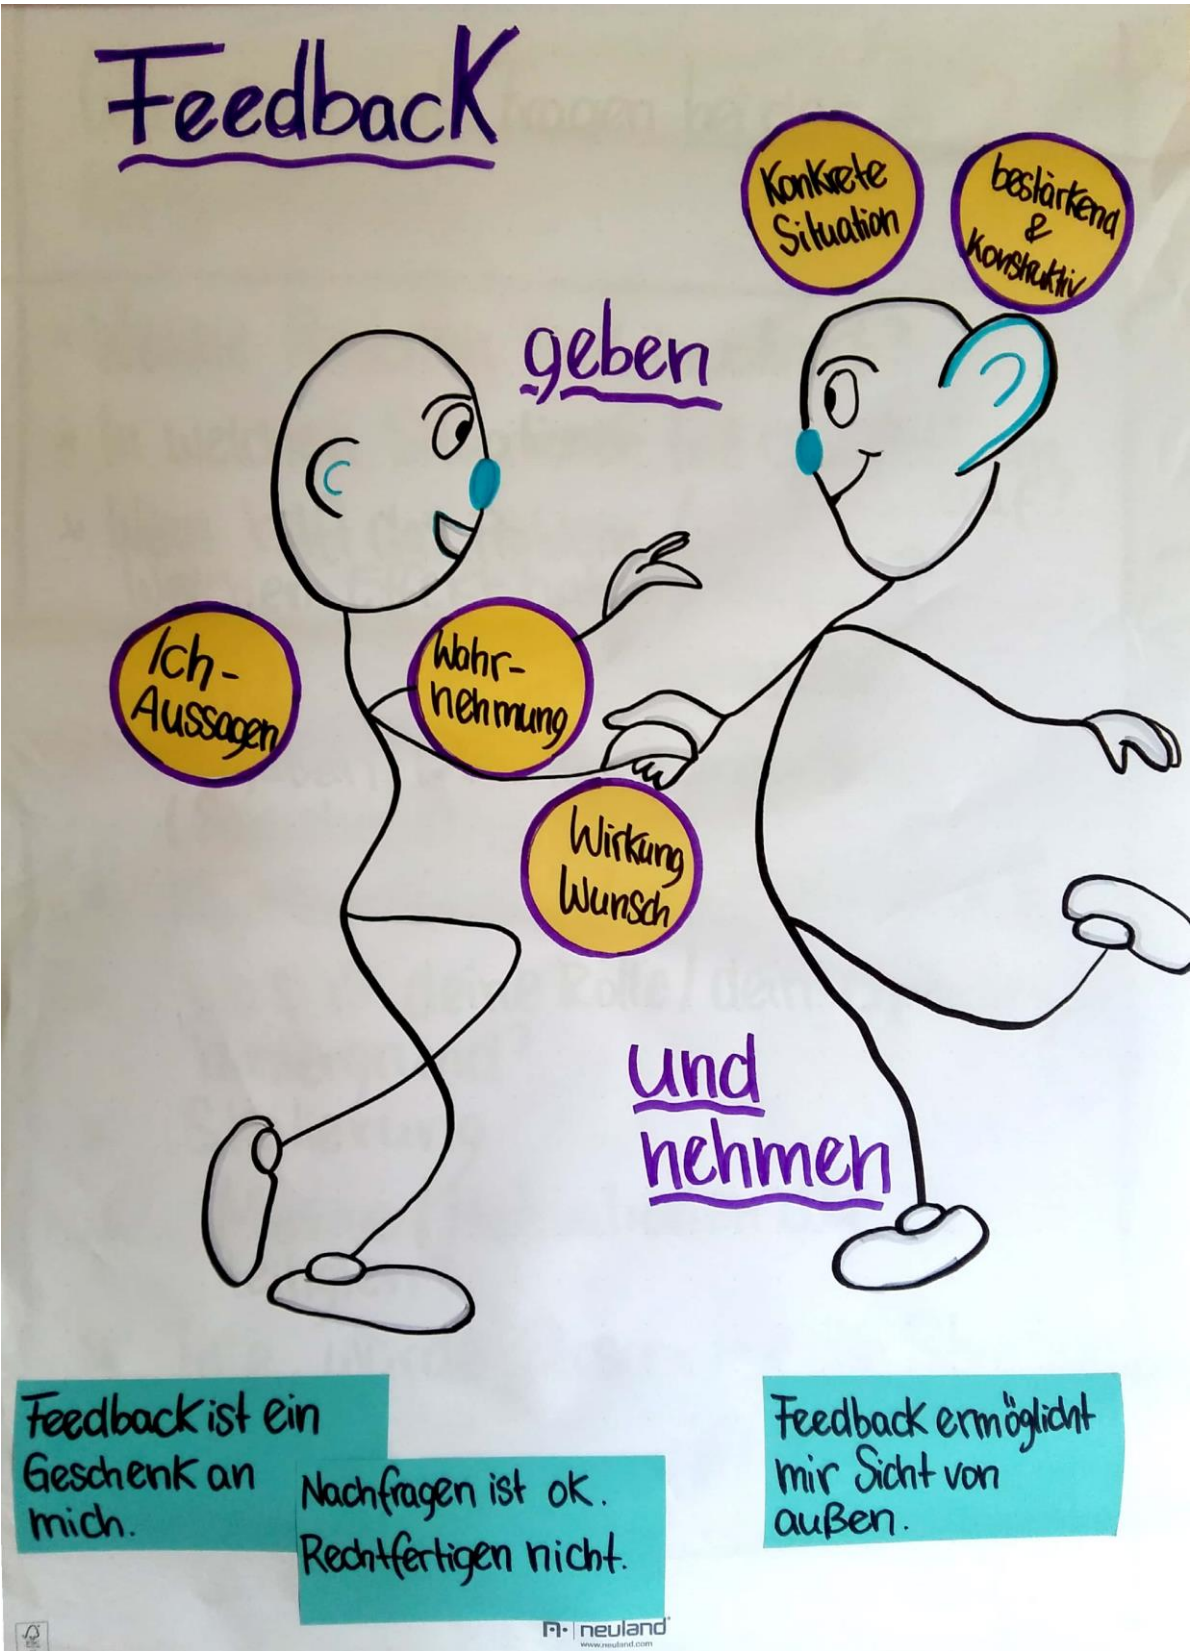 Feedback
Konkrete
Situation
bestärkend
&
Konstruktiv
geben
Ich-
Aussagen
Wahr-
nehmung
Wirkung
Wunsch
und
nehmen
Feedback ist ein
Geschenk an
mich.
Nachfragen ist ok.
Rechtfertigen nicht.
Feedback ermöglicht
mir Sicht von
außen.
neuland
www.neuland.com